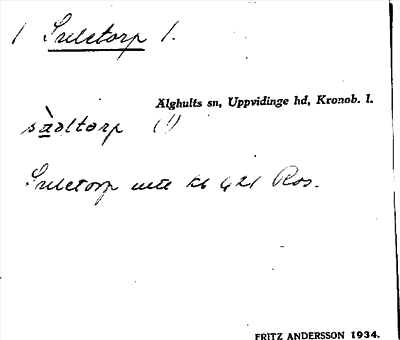 1 Suletorp 1.
Älghults sn, Uppvidinge hd, Kronob. l.
sàdltorp (!)
Suletorp mtl Kb 421 Ros.
FRITZ ANDERSSON 1934.